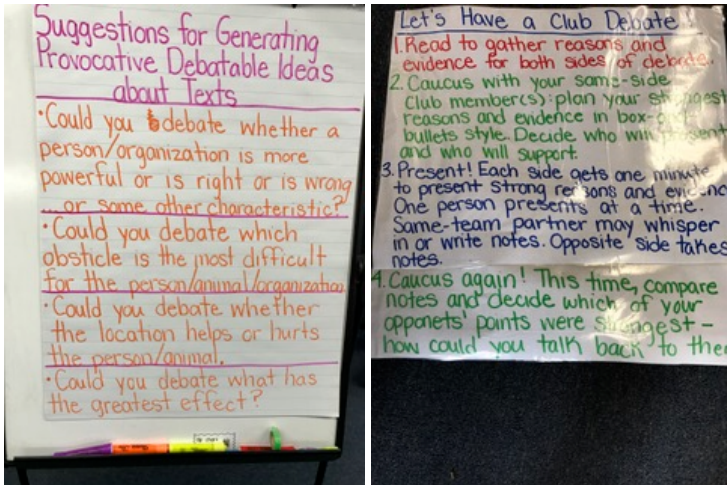 Suggestions for Generating
Provocative Debatable Ideas
about Texts
·Could you debate whether a
person/organization is more
powerful or is right or is wrong
... or some other characteristic?
·Could you debate which
obsticle is the most difficult
for the person/animal/organization
·Could you debate whether
the location helps or hurts
the person/animal.
·Could you debate what has
the greatest effect?
Let's Have a Club Debate!
1. Read to gather reasons and
evidence for both sides of debate.
2. Caucus with your same-side
club member(s): plan your strongest
reasons and evidence in box-and-
bullets style. Decide who will present
and who will support.
3. Present! Each side gets one minute
to present strong reasons and evidenc
One person presents at a time.
Same-team partner may whisper
in or write notes. Opposite side takes
notes.
4. Caucus again! This time, compare
notes and decide which of your
opponets' points were strongest -
how could you talk back to them